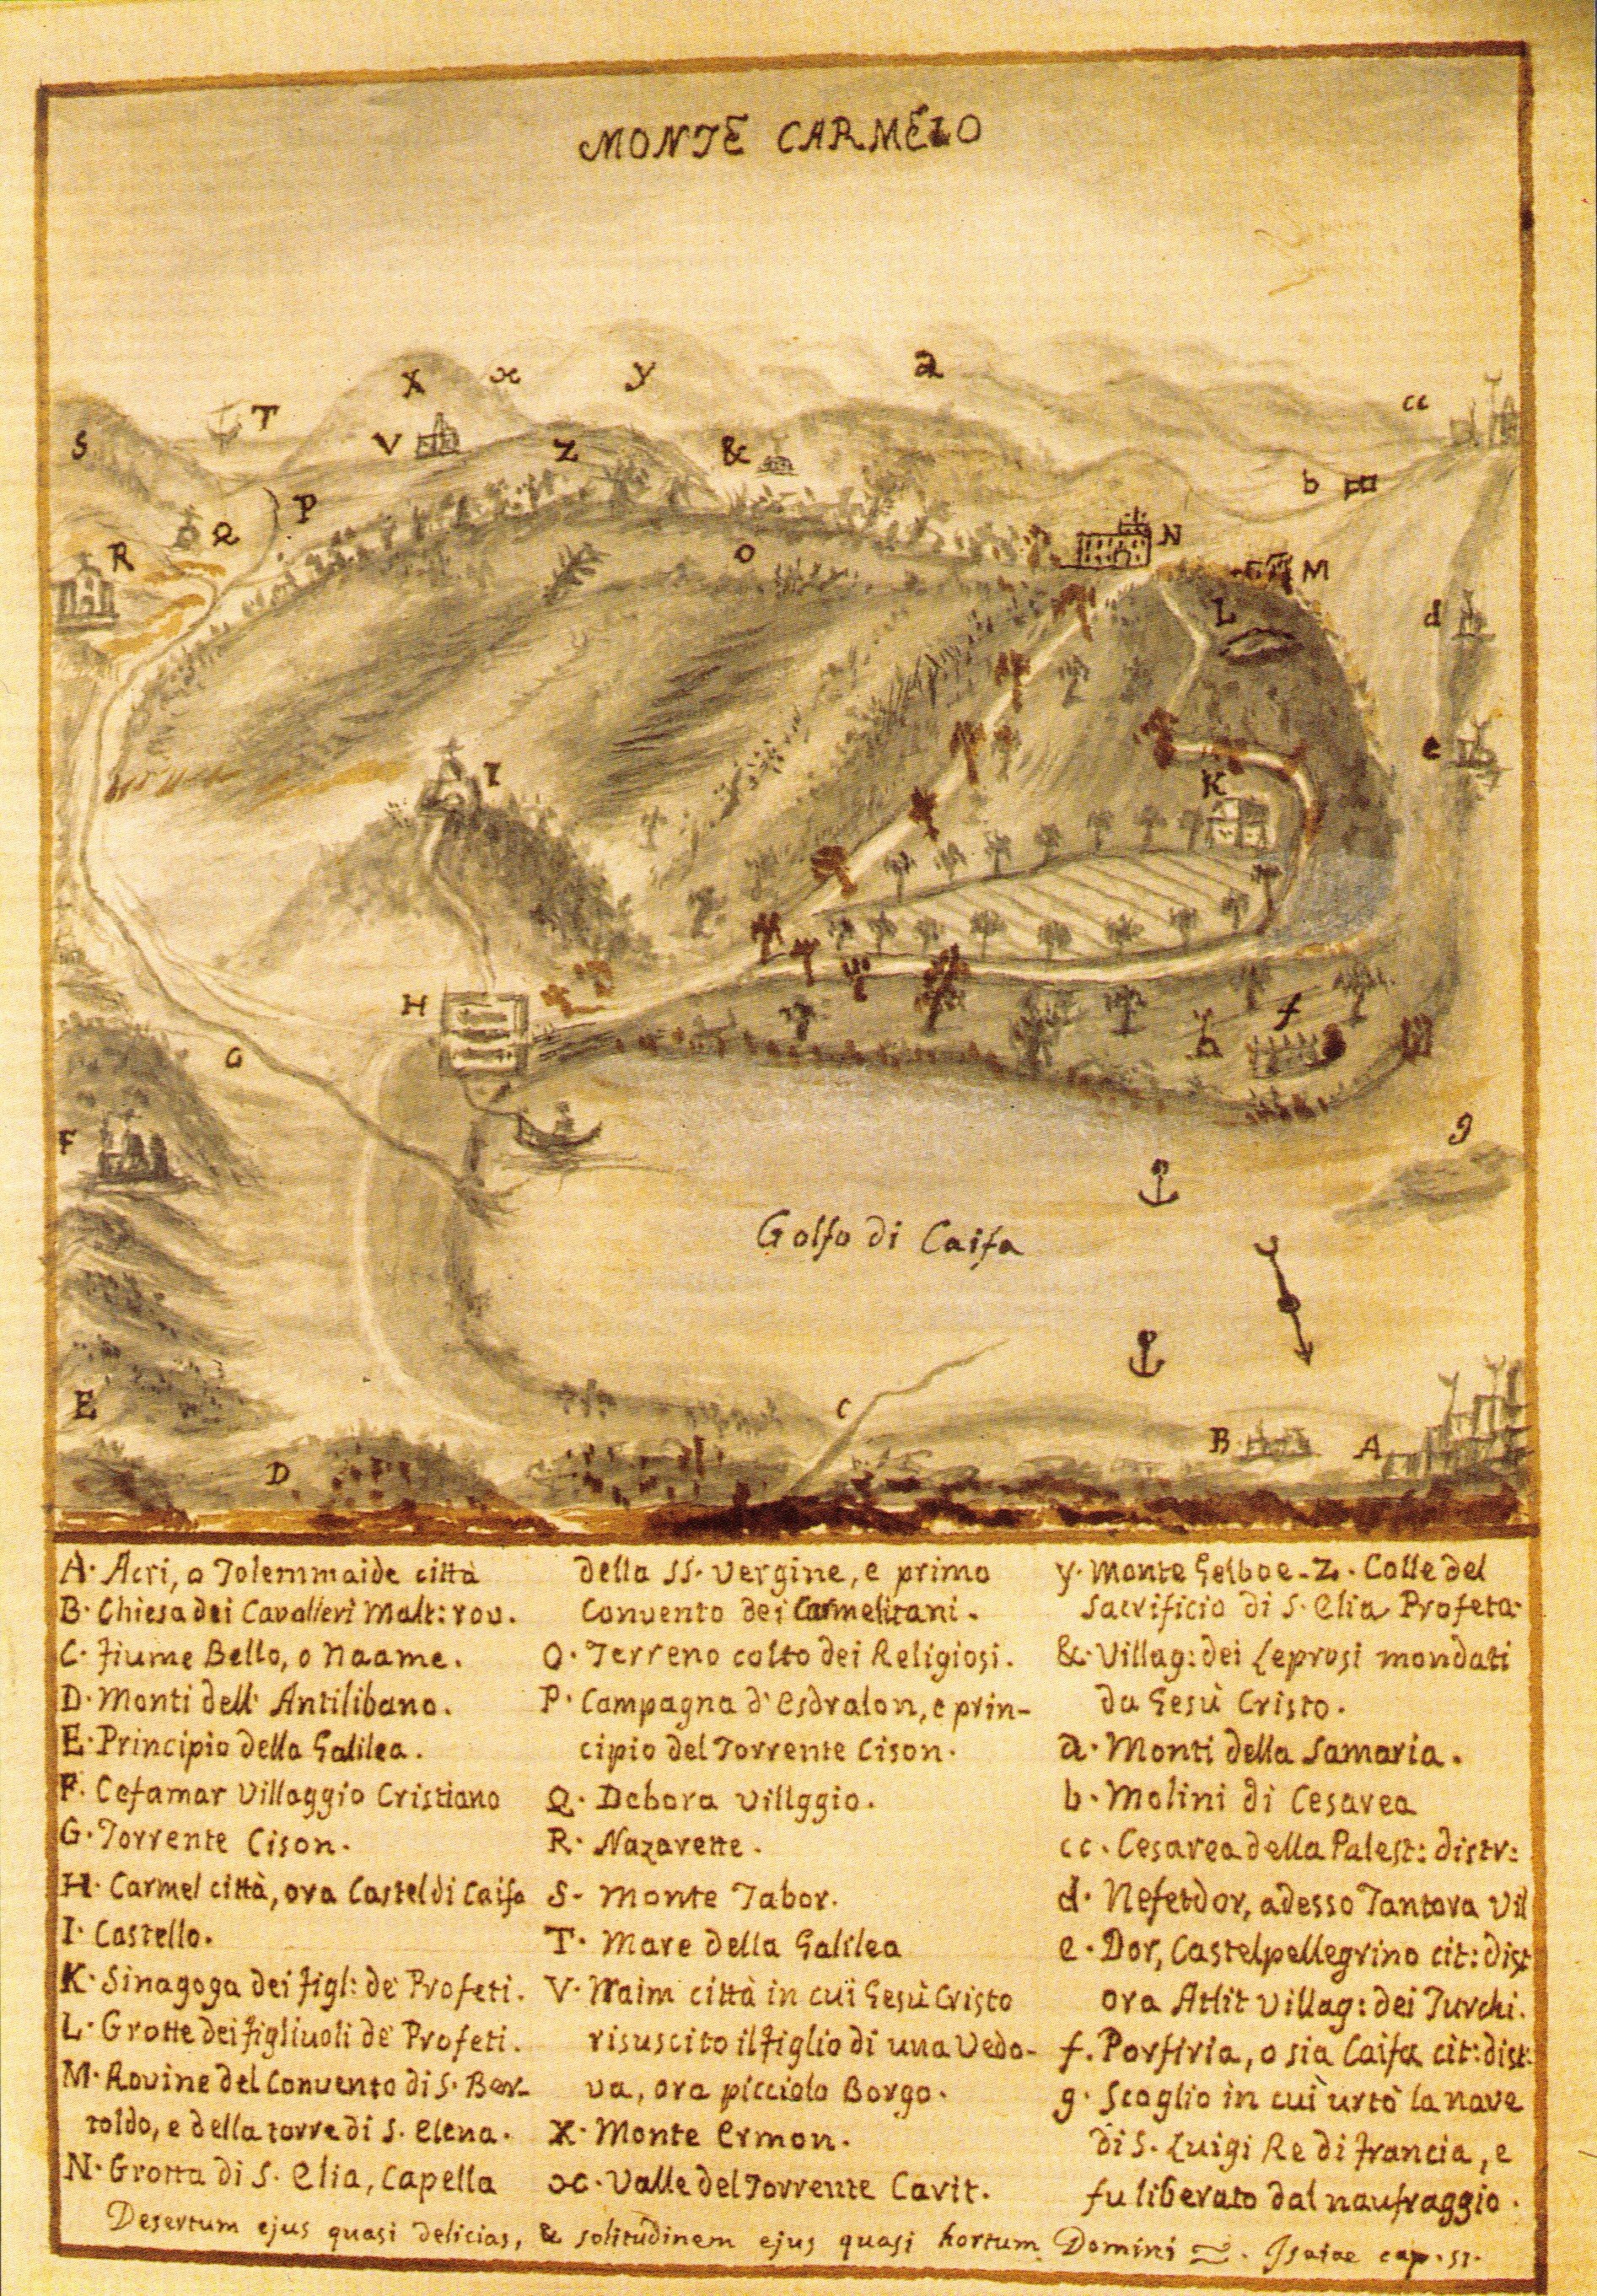 MONTE CARMELO
X x y a
cc
T
S
V
Z
&
b
P
Q
O
N
R
M
L
d
e
I
K
H
f
G
F
g
Golfo di Caifa
E
C
B
A
D
A. Acri, o Tolemmaide città
B. Chiesa dei Cavalieri Malt: rov.
C. Fiume Bello, o Naame.
D. Monti dell' Antilibano.
E. Principio della Galilea.
F. Cefamar Villaggio Cristiano
G. Torrente Cison.
H. Carmel città, ora Castel di Caifa
I. Castello.
K. Sinagoga dei figl: de' Profeti.
L. Grotte dei figliuoli de' Profeti.
M. Rovine del Convento di S. Ber-
toldo, e della torre di S. Elena.
N. Grotta di S. Elia, Capella
della SS. Vergine, e primo
Convento dei Carmelitani.
O. Terreno colto dei Religiosi.
P. Campagna d'Esdralon, e prin-
cipio del Torrente Cison.
Q. Debora Villggio.
R. Nazarette.
S. Monte Tabor.
T. Mare della Galilea
V. Naim città in cui Gesù Cristo
risuscito il figlio di una Vedo-
va, ora picciolo Borgo.
X. Monte Ermon.
x. Valle del Torrente Carit.
y. Monte Gelboe - Z. Colle del
Sacrificio di S. Elia Profeta.
&. Villag: dei Leprosi mondati
da Gesù Cristo.
a. Monti della Samaria.
b. Molini di Cesarea
cc. Cesarea della Palest: distr:
d. Nefetdor, adesso Tantora Vil
e. Dor, Castelpellegrino cit: dist
ora Atlit Villag: dei Turchi.
f. Porfiria, o sia Caifa cit: dist:
g. Scoglio in cui urtò la nave
di S. Luigi Re di Francia, e
fu liberato dal naufraggio.
Desertum ejus quasi delicias, & solitudinem ejus quasi hortum Domini ~. Isaiae cap. 51.